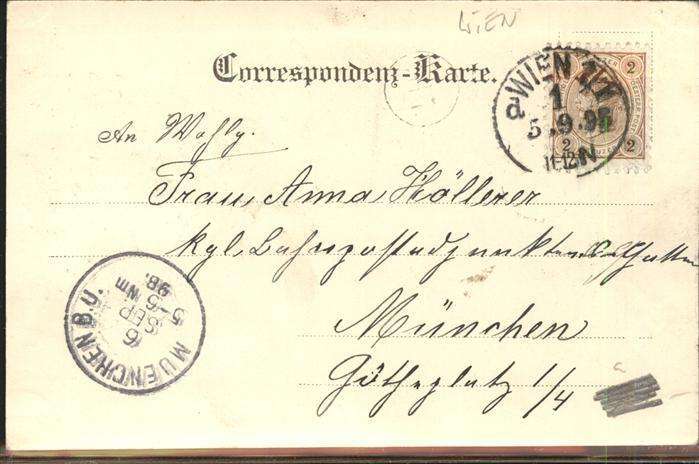 WIEN
Correspondenz-Karte.
WIEN
1
5.9.98
11-12 N
2 2
2 2
An Wohlg.
Frau Anna Höllerer
kgl. Bahnpostadjunktens Gattin
München
Götheplatz 1/4
MUENCHEN B.U.
6
SEP
5-6 Nm
98.